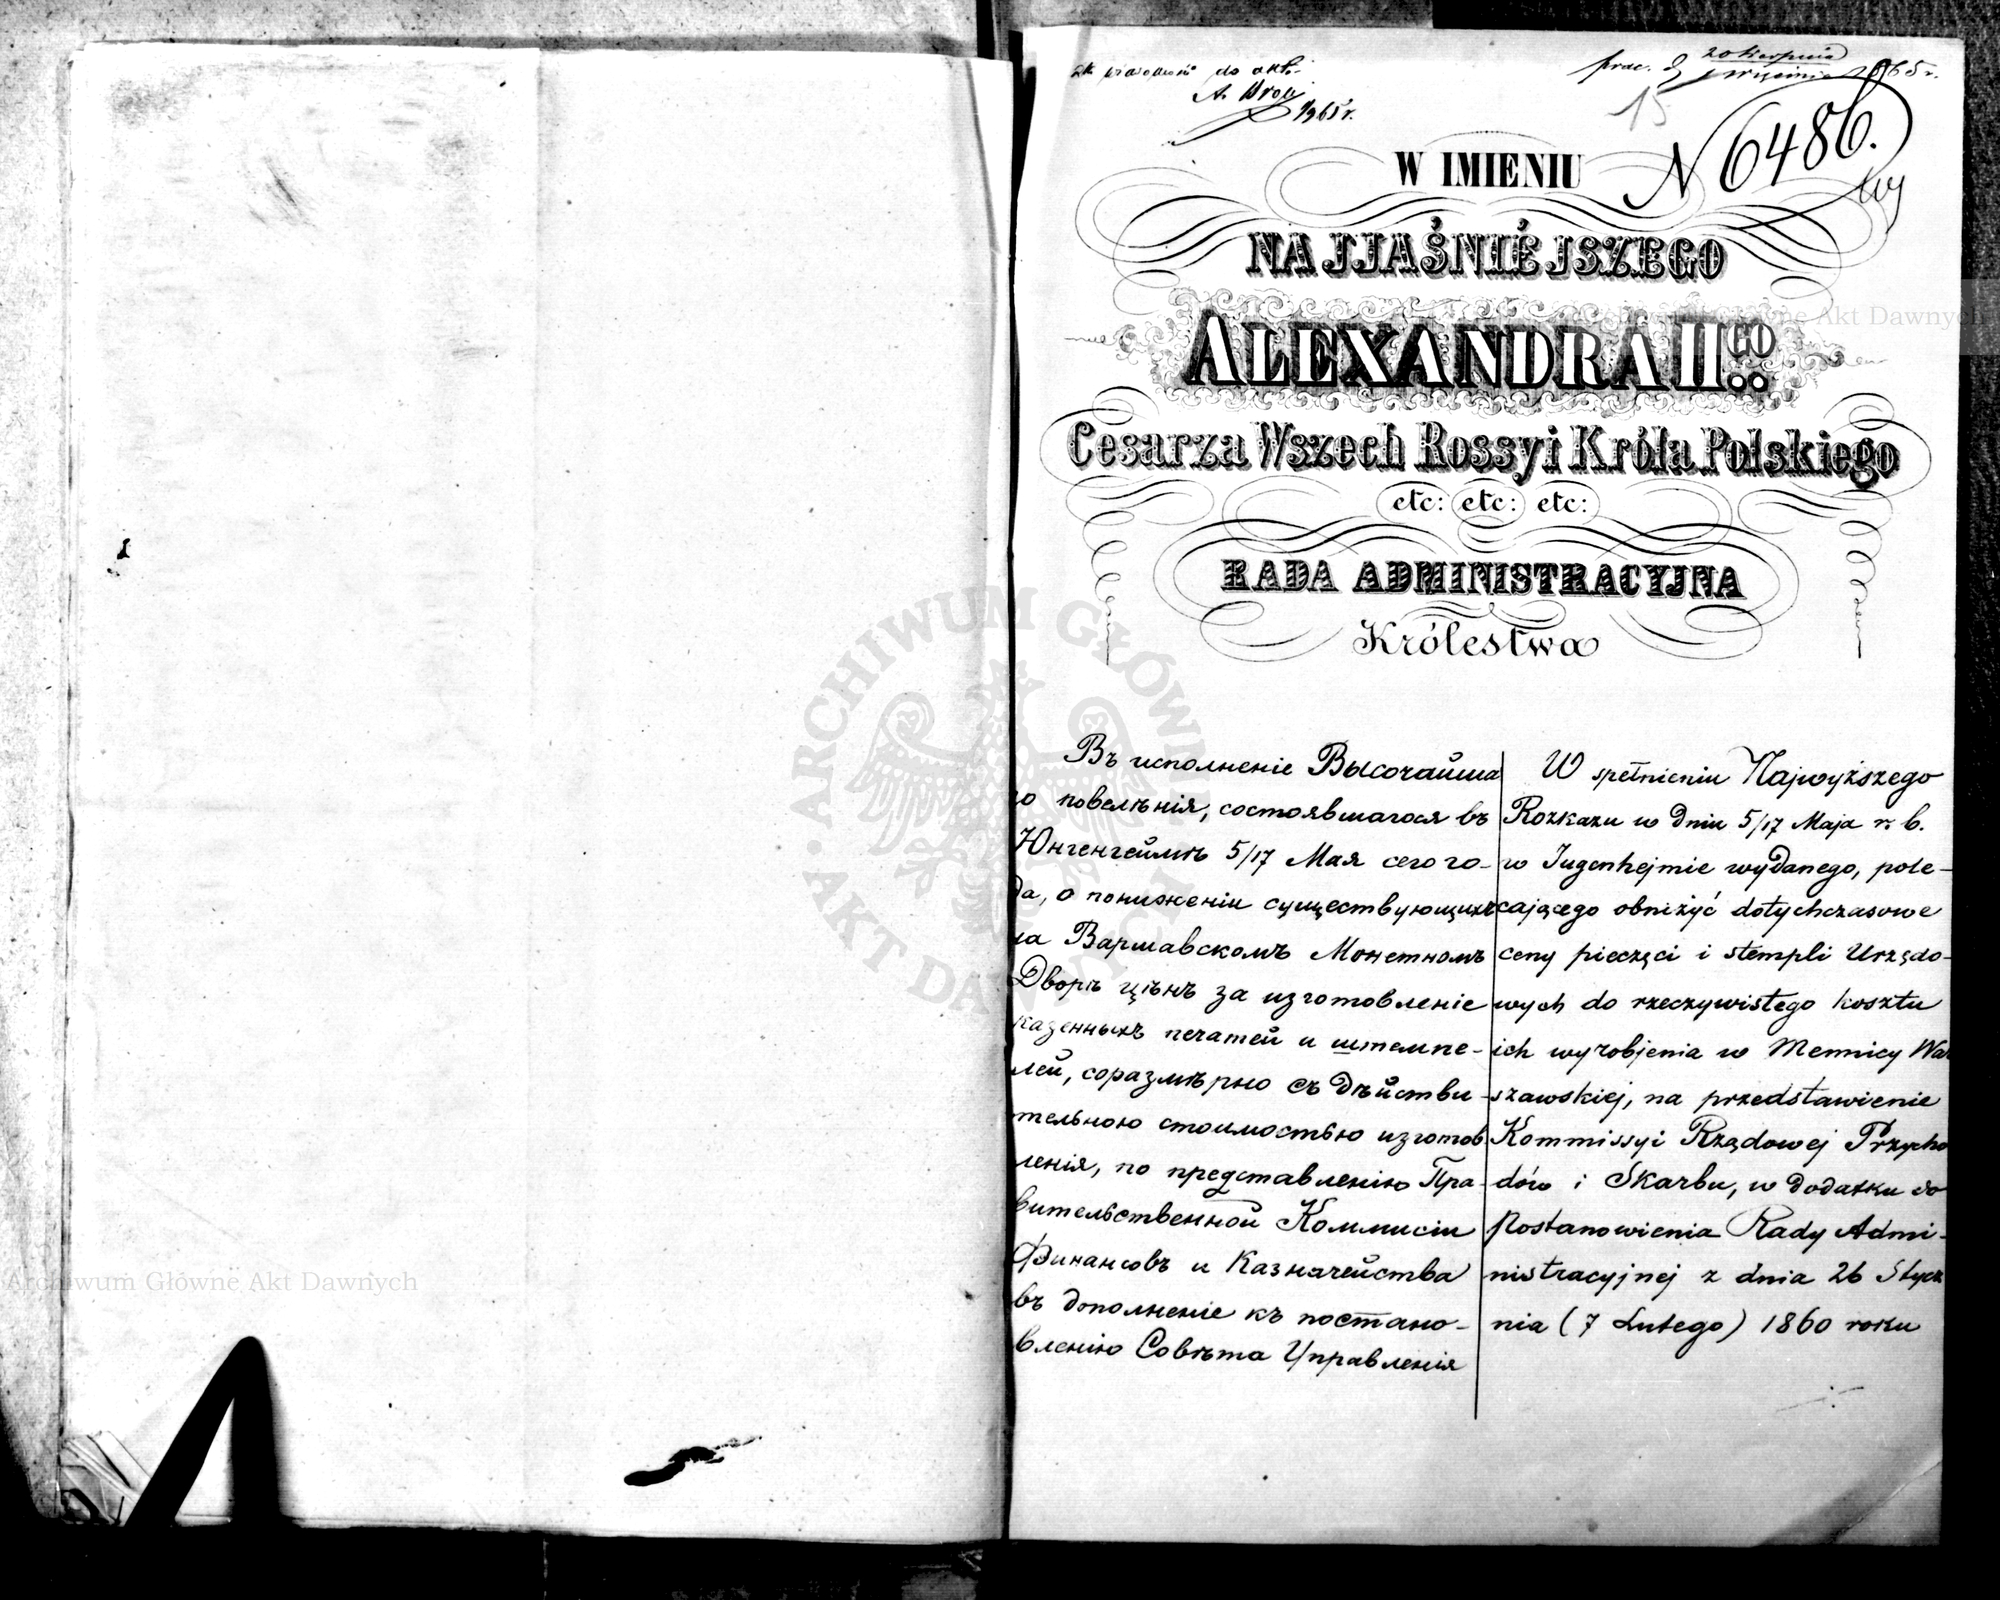 do akt
A. Wrou
1965 r.
prac. d. 20 Sierpnia
1 Września 1865 r.
15
N 6486.
W IMIENIU
NAJJAŚNIÉJSZEGO
ALEXANDRA II GO
Cesarza Wszech Rossyi Króla Polskiego
etc: etc: etc:
RADA ADMINISTRACYJNA
Królestwa
Въ исполненіе Высочайша
го повелѣнія, состоявшагося въ
Югенгеймѣ 5/17 Мая сего го-
да, о пониженіи существующихъ
на Варшавскомъ Монетномъ
Дворѣ цѣнъ за изготовленіе
казенныхъ печатей и штемпе-
лей, соразмѣрно съ дѣйстви-
тельною стоимостью изготов
ленія, по представленію Пра-
вительственной Коммисіи
Финансовъ и Казначейства
въ дополненіе къ постано-
вленію Совѣта Управленія
W spełnieniu Najwyższego
Rozkazu w dniu 5/17 Maja r. b.
w Jugenhejmie wydanego, pole-
cającego obniżyć dotychczasowe
ceny pieczęci i stempli Urzędo-
wych do rzeczywistego kosztu
ich wyrobienia w Mennicy War
szawskiej, na przedstawienie
Kommissyi Rządowej Przycho
dów i Skarbu, w dodatku do
Postanowienia Rady Admi-
nistracyjnej z dnia 26 Stycz
nia (7 Lutego) 1860 roku
Archiwum Główne Akt Dawnych
ARCHIWUM GŁÓWNE AKT DAWNYCH
Archiwum Główne Akt Dawnych